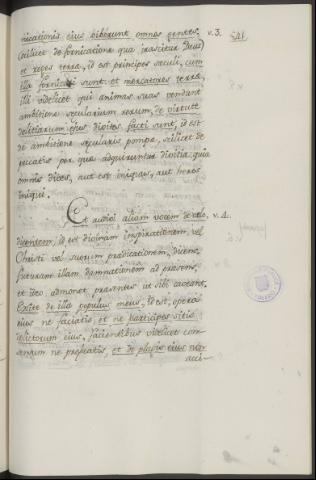 nicationis ejus biberunt omnes gentes, v. 3.
(scilicet de fornicatione qua irascitur Deus)
et reges terræ, id est principes sæculi, cum
illa fornicati sunt et mercatores terræ,
illi videlicet qui animas suas vendunt
ambitione sæcularium rerum, de virtute
delitiarum ejus divites facti sunt, id est
de ambitione sæcularis pompæ, scilicet de
peccatis per quæ adquiruntur divitiæ: quia
omnis dives, aut est iniquus, aut heres
iniqui.
Et audivi aliam vocem de cælo, v. 4.
dicentem, id est divinam inspirationem, vel
Christi vel suorum prædicationem, dicens
futuram illam damnationem ad pravos,
et ideo admonet præsentes ut sibi caveant.
Exite de illa populus meus, id est, opera
ejus ne faciatis, et ne participes sitis
delictorum ejus, facientibus videlicet con-
sensum ne præbeatis, et de plagis ejus non
acci-